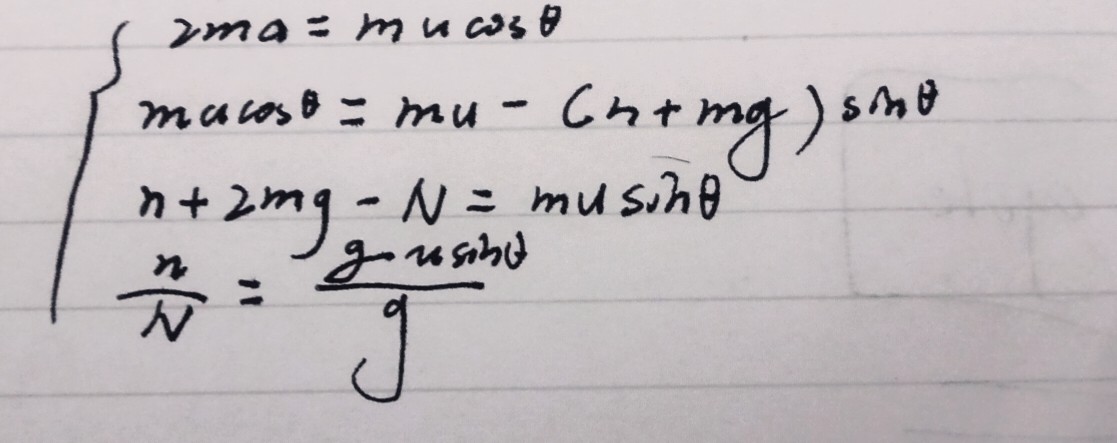 2ma = mu cosθ
mu cosθ = mu - (n + mg) sinθ
n + 2mg - N = mu sinθ
n/N = (g - u sinθ)/g